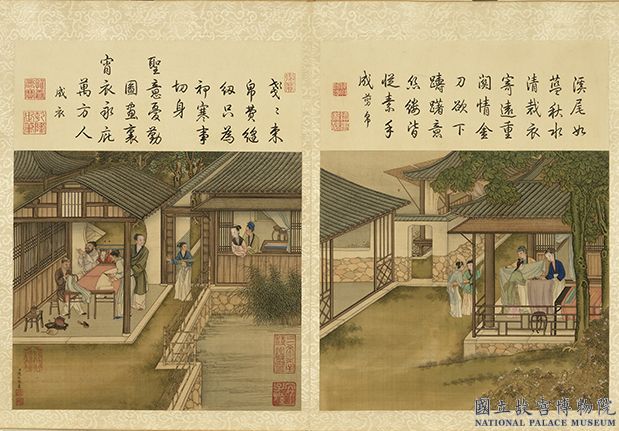 溪尾如
藍秋水
清裁衣
寄遠重
関情金
刀欲下
躊躇意
絲縷皆
從素手
成 剪帛
戔〻束
帛費縫
紉只為
祁寒事
切身
聖意憂勤
圖畫裏
宵衣永庇
萬方人
成衣
國立故宮博物院
NATIONAL PALACE MUSEUM